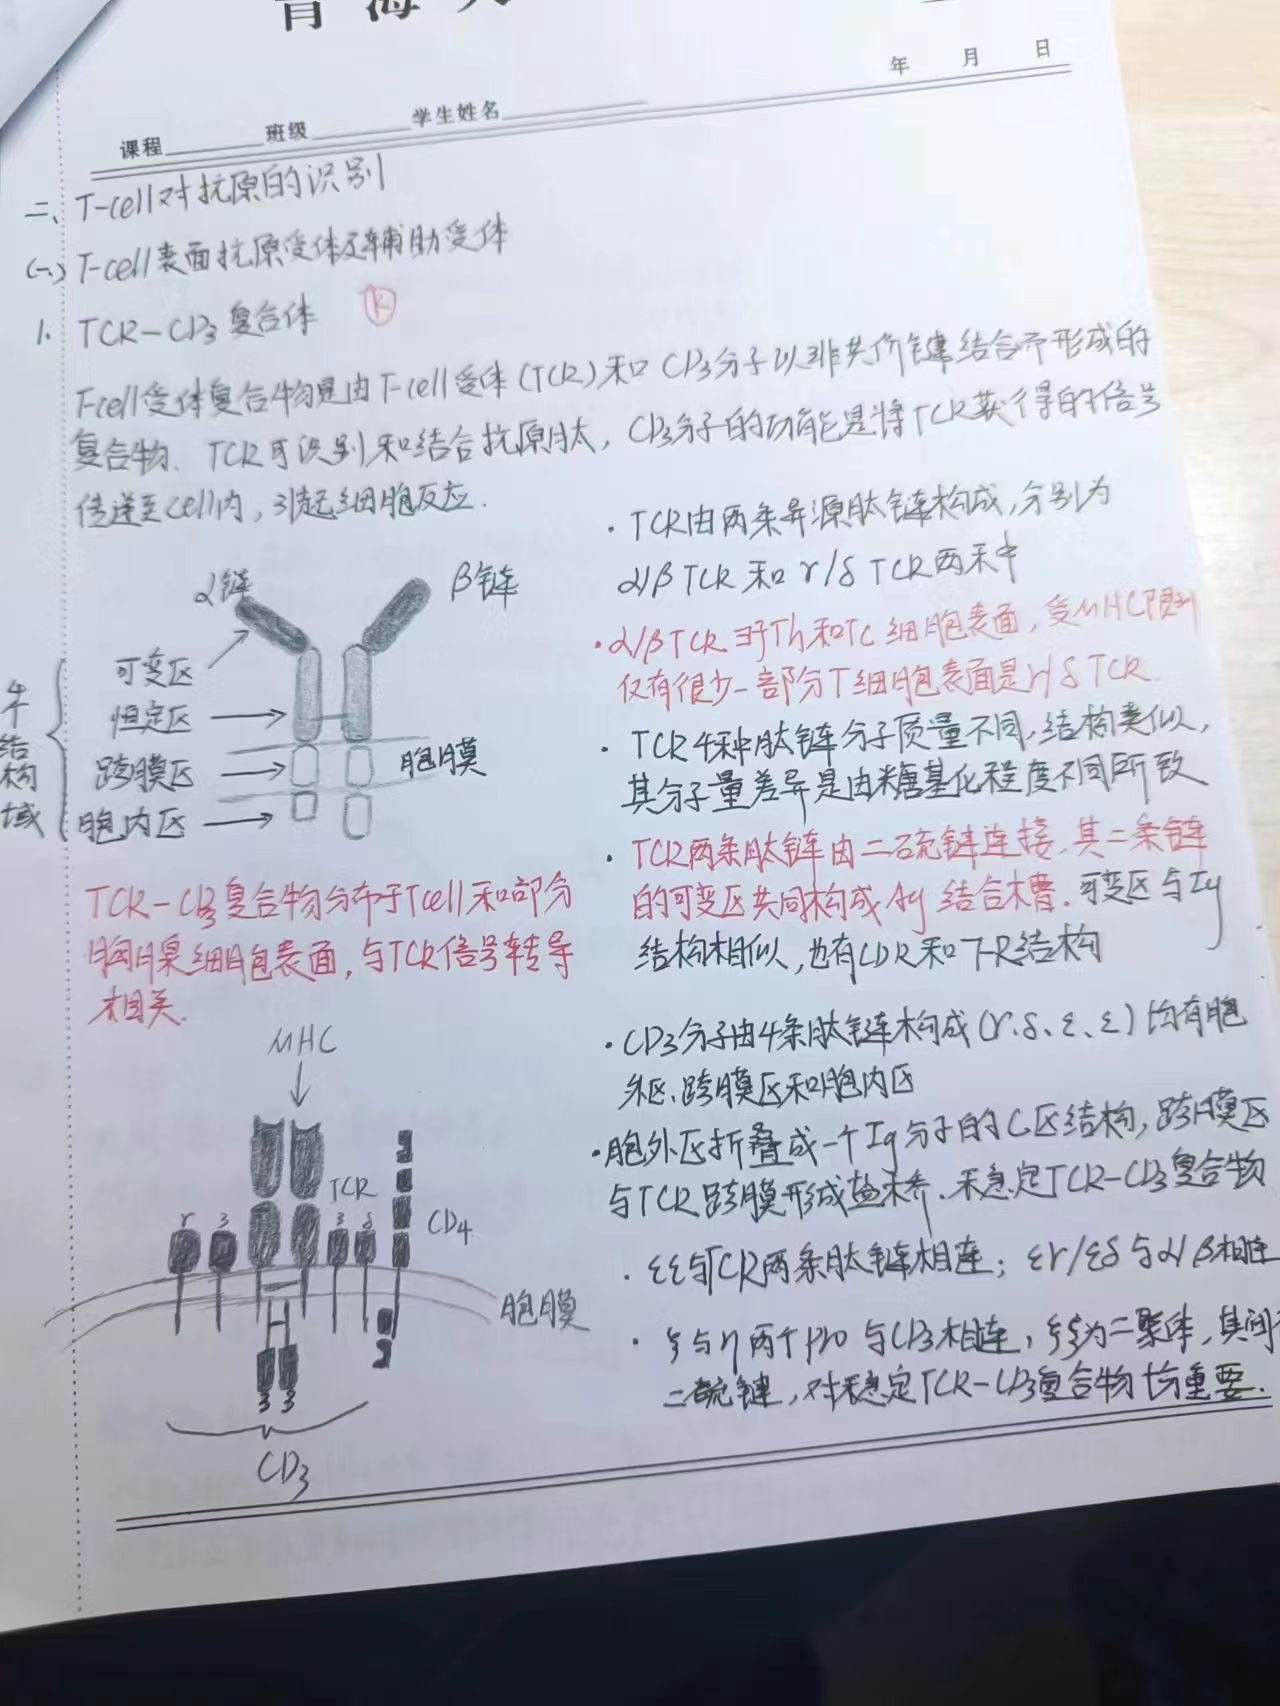 青海大
年 月 日
课程 班级 学生姓名
二、T-cell对抗原的识别
(一) T-cell表面抗原受体及辅助受体
1. TCR-CD3复合体 K
T-cell受体复合物是由T-cell受体(TCR)和CD3分子以非共价键结合而形成的
复合物. TCR可识别和结合抗原肽, CD3分子的功能是将TCR获得的信号
传递至cell内, 引起细胞反应.
α链 β链
可变区
恒定区
跨膜区 胞膜
胞内区
4个结构域
TCR-CD3复合物分布于Tcell和部分
胸腺细胞表面, 与TCR信号转导
相关.
MHC
TCR
γ ε ε δ
CD4
胞膜
3 3
CD3
· TCR由两条异源肽链构成, 分别为
α/β TCR 和 γ/δ TCR两种
· α/β TCR 于Th和Tc细胞表面, 受MHC限制
仅有很少一部分T细胞表面是γ/δ TCR.
· TCR 4种肽链分子质量不同, 结构类似,
其分子量差异是由糖基化程度不同所致
· TCR两条肽链由二硫键连接, 其二条链
的可变区共同构成Ag结合槽. 可变区与Ig
结构相似, 也有CDR和FR结构
· CD3分子由4条肽链构成(γ、δ、ε、ε)均有胞
外区、跨膜区和胞内区
· 胞外区折叠成一个Ig分子的C区结构, 跨膜区
与TCR跨膜形成盐桥. 稳定TCR-CD3复合物
· εε与TCR两条肽链相连; εγ/εδ与α/β相连
· ξ与η两个pro与CD3相连, ξξ为二聚体, 其间
二硫键, 对稳定TCR-CD3复合物均重要.